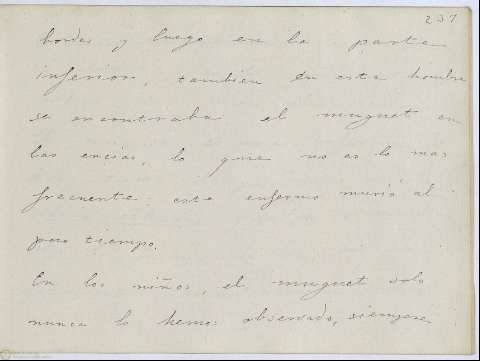 237
bordes y luego en la parte
inferior, también en este hombre
se encontraba el muguet en
las encias, lo que no es lo mas
frecuente. este enfermo murió al
poco tiempo.
En los niños, el muguet solo
nunca lo hemos observado, siempre